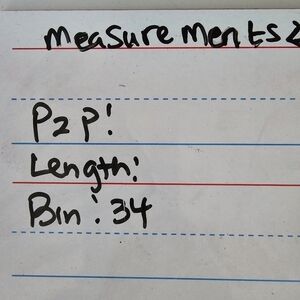 Measurements
P2P:
Length:
Bin: 34